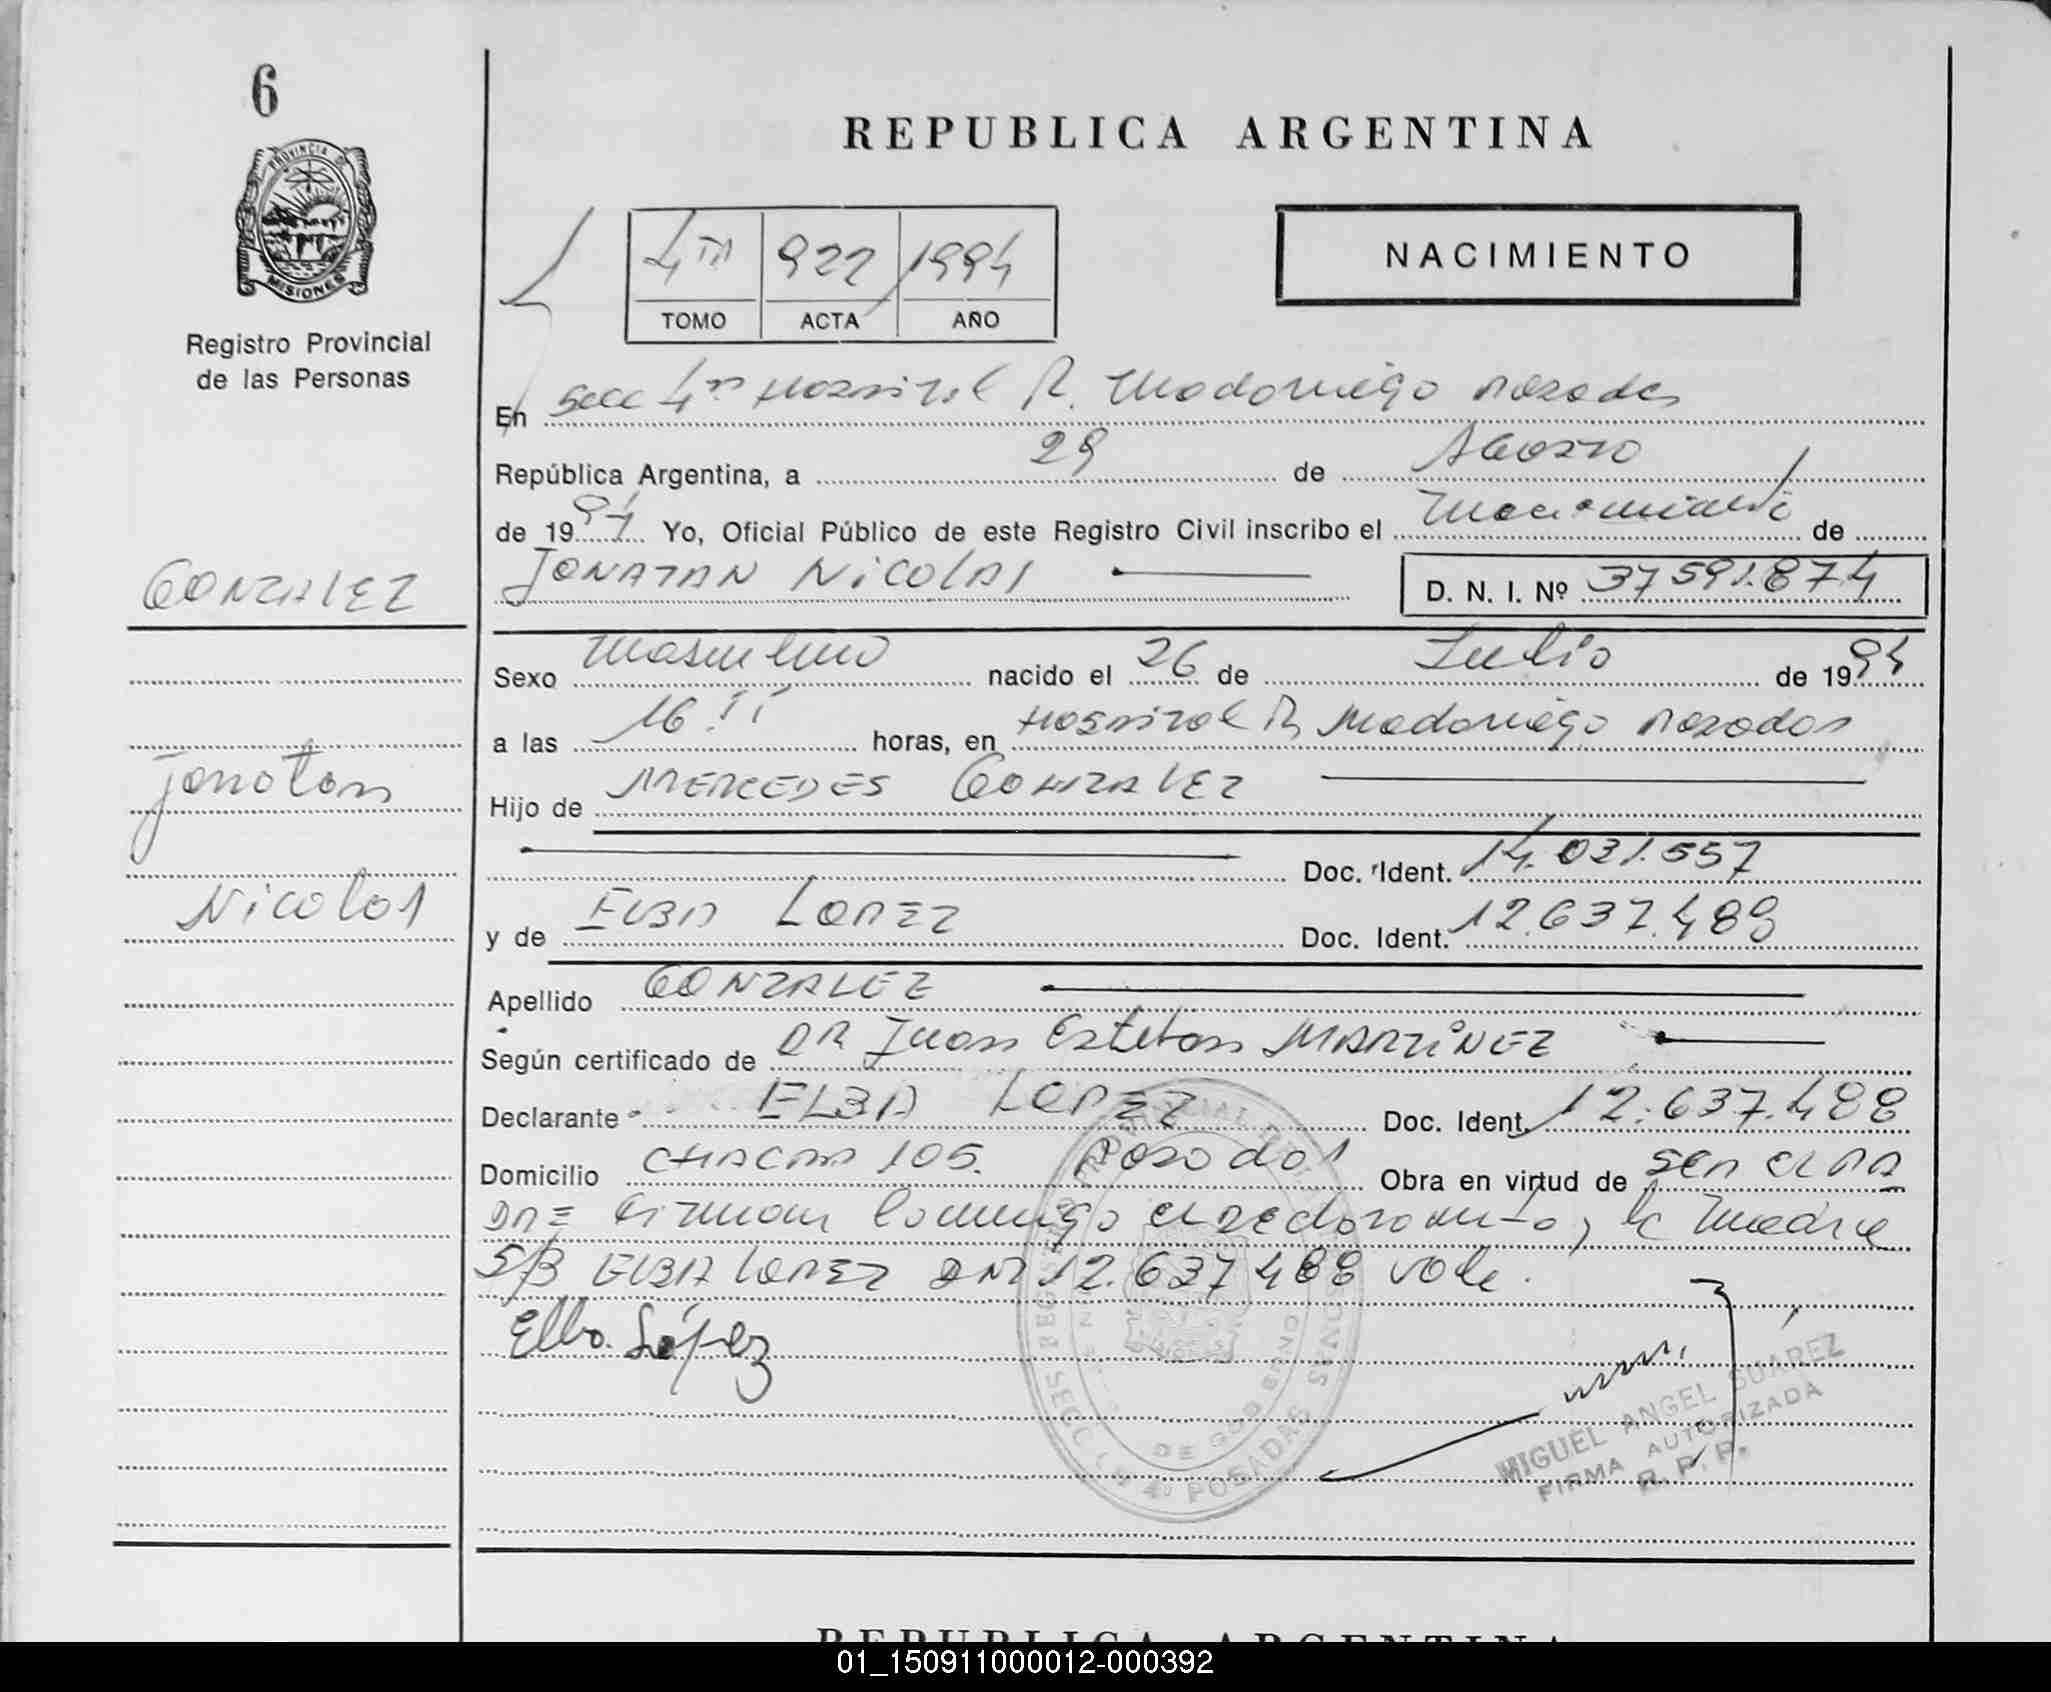 6
REPUBLICA ARGENTINA
PROVINCIA DE
MISIONES
Registro Provincial
de las Personas
4ta 922 1994
TOMO ACTA AÑO
NACIMIENTO
En Secc 4ta Hospital R. Madariaga Posadas
República Argentina, a 29 de Agosto
de 1994 Yo, Oficial Público de este Registro Civil inscribo el Nacimiento de
GONZALEZ
JONATAN NICOLAS
D. N. I. Nº 37591.874
Sexo Masculino nacido el 26 de Julio de 1994
a las 16 horas, en Hospital R. Madariaga Posadas
Jonatan
Hijo de MERCEDES GONZALEZ
Doc. Ident. 14.031.557
Nicolas
y de ELBA LOPEZ Doc. Ident. 12.637.489
Apellido GONZALEZ
Según certificado de DR Juan Esteban MARTINEZ
Declarante ELBA LOPEZ Doc. Ident. 12.637.488
Domicilio CHACRA 105. Posadas Obra en virtud de ser el PA
DRE Firman conmigo el declarante, la Madre
S/B ELBA LOPEZ DNI 12.637 488 Vale.
Elba López
REGISTRO PROVINCIAL DE LAS PERSONAS
SECC 4a POSADAS
MIGUEL ANGEL SUAREZ
FIRMA AUTORIZADA
R. P. P.
REPUBLICA ARGENTINA
01_150911000012-000392